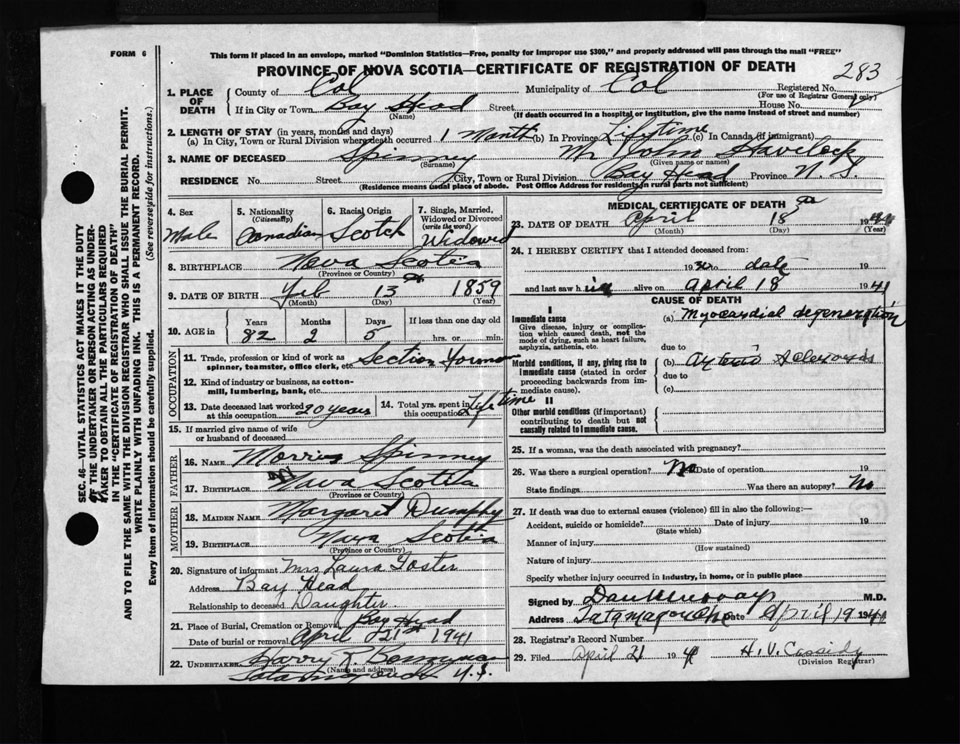 FORM 6
This form if placed in an envelope, marked "Dominion Statistics—Free, penalty for improper use $300," and properly addressed will pass through the mail "FREE"
PROVINCE OF NOVA SCOTIA—CERTIFICATE OF REGISTRATION OF DEATH
283
1. PLACE OF DEATH
County of Col Municipality of Col Registered No.
(For use of Registrar General only)
If in City or Town Bay Head Street House No.
(Name) (If death occurred in a hospital or institution, give the name instead of street and number)
2. LENGTH OF STAY (in years, months and days)
(a) In City, Town or Rural Division where death occurred 1 Month (b) In Province Lifetime (c) In Canada (if immigrant)
3. NAME OF DECEASED Spinney Mr John Havelock
(Surname) (Given name or names)
RESIDENCE No. Street City, Town or Rural Division Bay Head Province N. S.
(Residence means usual place of abode. Post Office Address for residents in rural parts not sufficient)
4. Sex
Male
5. Nationality
(Citizenship)
Canadian
6. Racial Origin
Scotch
7. Single, Married, Widowed or Divorced
(write the word)
Widowed
8. BIRTHPLACE Nova Scotia
(Province or Country)
9. DATE OF BIRTH Feb 13 1859
(Month) (Day) (Year)
10. AGE in
Years Months Days If less than one day old
82 2 5 hrs. or min.
OCCUPATION
11. Trade, profession or kind of work as spinner, teamster, office clerk, etc. Section Forman
12. Kind of industry or business, as cotton-mill, lumbering, bank, etc.
13. Date deceased last worked at this occupation 20 years
14. Total yrs. spent in this occupation Lifetime
15. If married give name of wife or husband of deceased
FATHER
16. NAME Morris Spinney
17. BIRTHPLACE Nova Scotia
(Province or Country)
MOTHER
18. MAIDEN NAME Margaret Dumphy
19. BIRTHPLACE Nova Scotia
(Province or Country)
20. Signature of informant Mrs Laura Foster
Address Bay Head
Relationship to deceased Daughter
21. Place of Burial, Cremation or Removal Bay Head
Date of burial or removal April 21st 1941
22. UNDERTAKER Harry R.
(Name and address)
Tatamagouche N.S.
MEDICAL CERTIFICATE OF DEATH
23. DATE OF DEATH April 18 19
(Month) (Day) (Year)
24. I HEREBY CERTIFY that I attended deceased from:
19 to date 19
and last saw h im alive on April 18 1941
CAUSE OF DEATH
I
Immediate cause
Give disease, injury or complication which caused death, not the mode of dying, such as heart failure, asphyxia, asthenia, etc.
(a) Myocardial degeneration
due to
Morbid conditions, if any, giving rise to immediate cause (stated in order proceeding backwards from immediate cause).
(b) Arterio Sclerosis
due to
(c)
II
Other morbid conditions (if important) contributing to death but not causally related to immediate cause.
25. If a woman, was the death associated with pregnancy?
26. Was there a surgical operation? No Date of operation 19
State findings Was there an autopsy? No
27. If death was due to external causes (violence) fill in also the following:—
Accident, suicide or homicide? Date of injury 19
(State which)
Manner of injury
(How sustained)
Nature of injury
Specify whether injury occurred in industry, in home, or in public place
Signed by Dan Murray M.D.
Address Tatamagouche Date April 19 1941
28. Registrar's Record Number
29. Filed April 21 1941 H. V. Cassidy
(Division Registrar)
SEC. 46—VITAL STATISTICS ACT MAKES IT THE DUTY
OF THE UNDERTAKER OR PERSON ACTING AS UNDER-
TAKER TO OBTAIN ALL THE PARTICULARS REQUIRED
IN THE "CERTIFICATE OF REGISTRATION OF DEATH"
AND TO FILE THE SAME WITH THE DIVISION REGISTRAR WHO SHALL ISSUE THE BURIAL PERMIT.
WRITE PLAINLY WITH UNFADING INK. THIS IS A PERMANENT RECORD.
Every item of information should be carefully supplied. (See reverse side for instructions.)